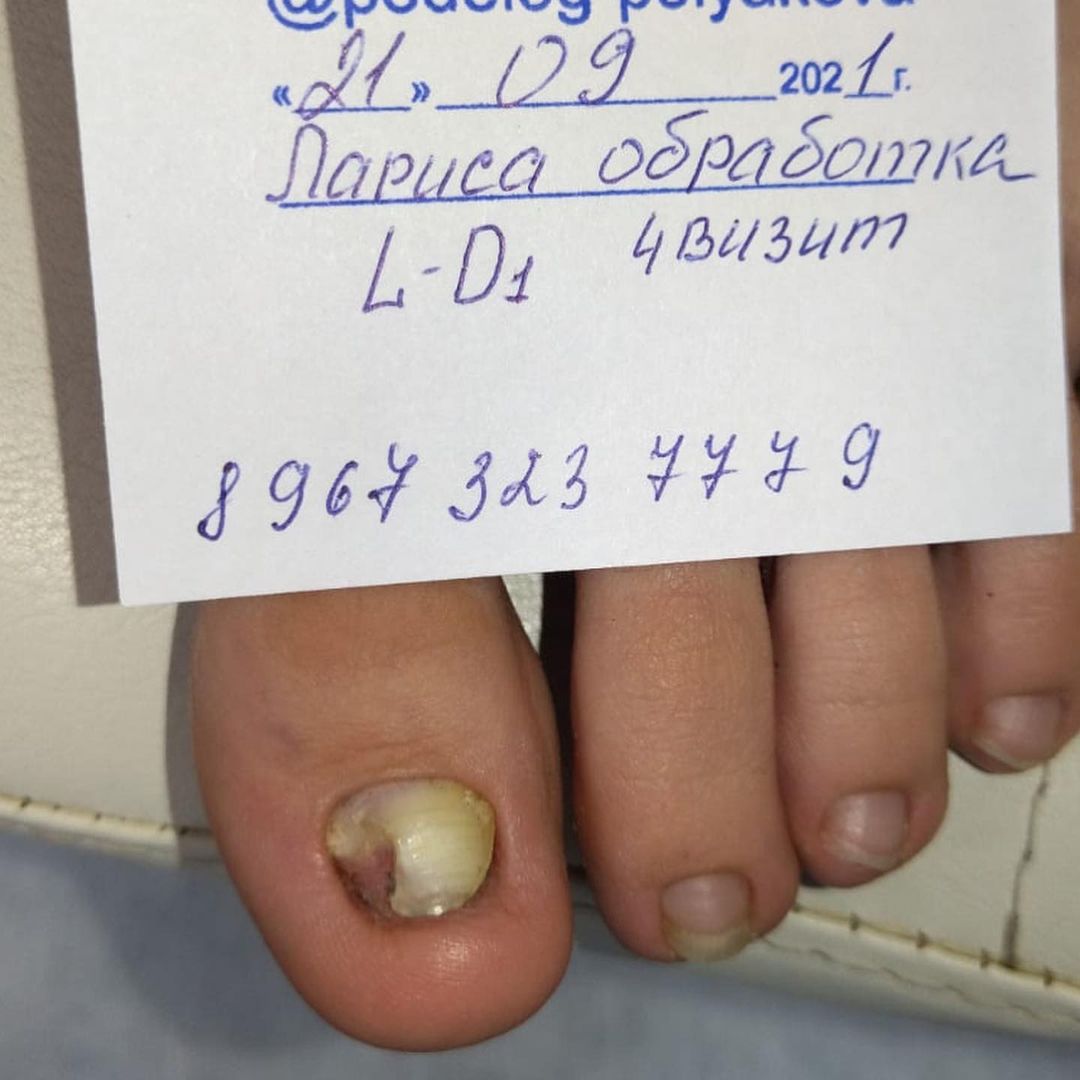 @podolog-polyakova
«21» 09 2021г.
Лариса обработка
L-D1 4 визит
8 967 323 777 9